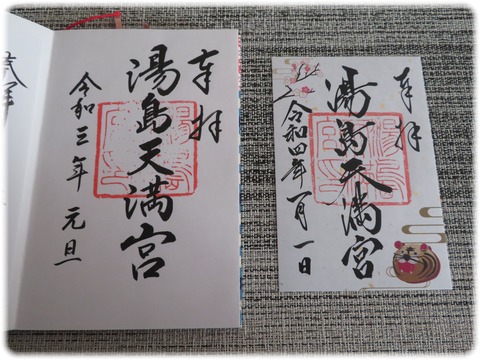 奉拝
湯島天満宮
令和三年 元旦
奉拝
湯島天満宮
令和四年一月一日